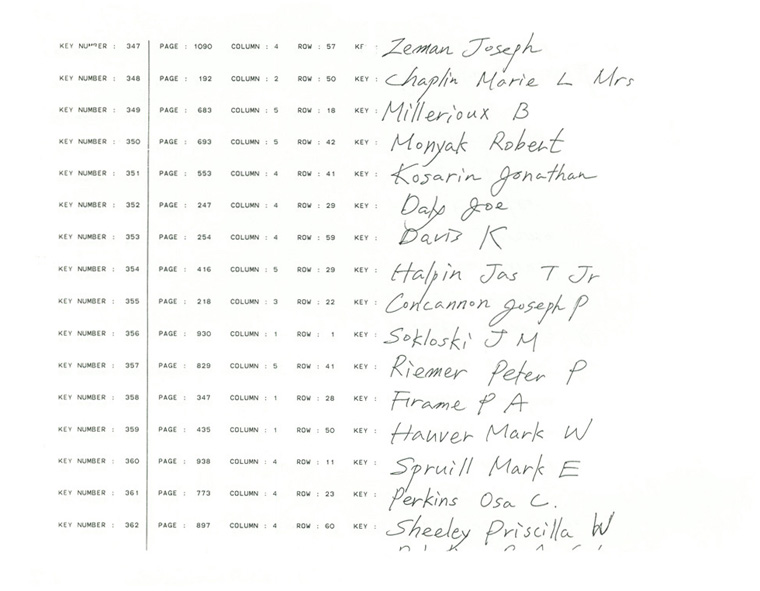 KEY NUMBER : 347 PAGE : 1090 COLUMN : 4 ROW : 57 KE : Zeman Joseph
KEY NUMBER : 348 PAGE : 192 COLUMN : 2 ROW : 50 KEY : Chaplin Marie L Mrs
KEY NUMBER : 349 PAGE : 683 COLUMN : 5 ROW : 18 KEY : Millerioux B
KEY NUMBER : 350 PAGE : 693 COLUMN : 5 ROW : 42 KEY : Monyak Robert
KEY NUMBER : 351 PAGE : 553 COLUMN : 4 ROW : 41 KEY : Kosarin Jonathan
KEY NUMBER : 352 PAGE : 247 COLUMN : 4 ROW : 29 KEY : Daly Joe
KEY NUMBER : 353 PAGE : 254 COLUMN : 4 ROW : 59 KEY : Davis K
KEY NUMBER : 354 PAGE : 416 COLUMN : 5 ROW : 29 KEY : Halpin Jas T Jr
KEY NUMBER : 355 PAGE : 218 COLUMN : 3 ROW : 22 KEY : Concannon Joseph P
KEY NUMBER : 356 PAGE : 930 COLUMN : 1 ROW : 1 KEY : Sokloski J M
KEY NUMBER : 357 PAGE : 829 COLUMN : 5 ROW : 41 KEY : Riemer Peter P
KEY NUMBER : 358 PAGE : 347 COLUMN : 1 ROW : 28 KEY : Firame P A
KEY NUMBER : 359 PAGE : 435 COLUMN : 1 ROW : 50 KEY : Hauver Mark W
KEY NUMBER : 360 PAGE : 938 COLUMN : 4 ROW : 11 KEY : Spruill Mark E
KEY NUMBER : 361 PAGE : 773 COLUMN : 4 ROW : 23 KEY : Perkins Osa C.
KEY NUMBER : 362 PAGE : 897 COLUMN : 4 ROW : 60 KEY : Sheeley Priscilla W